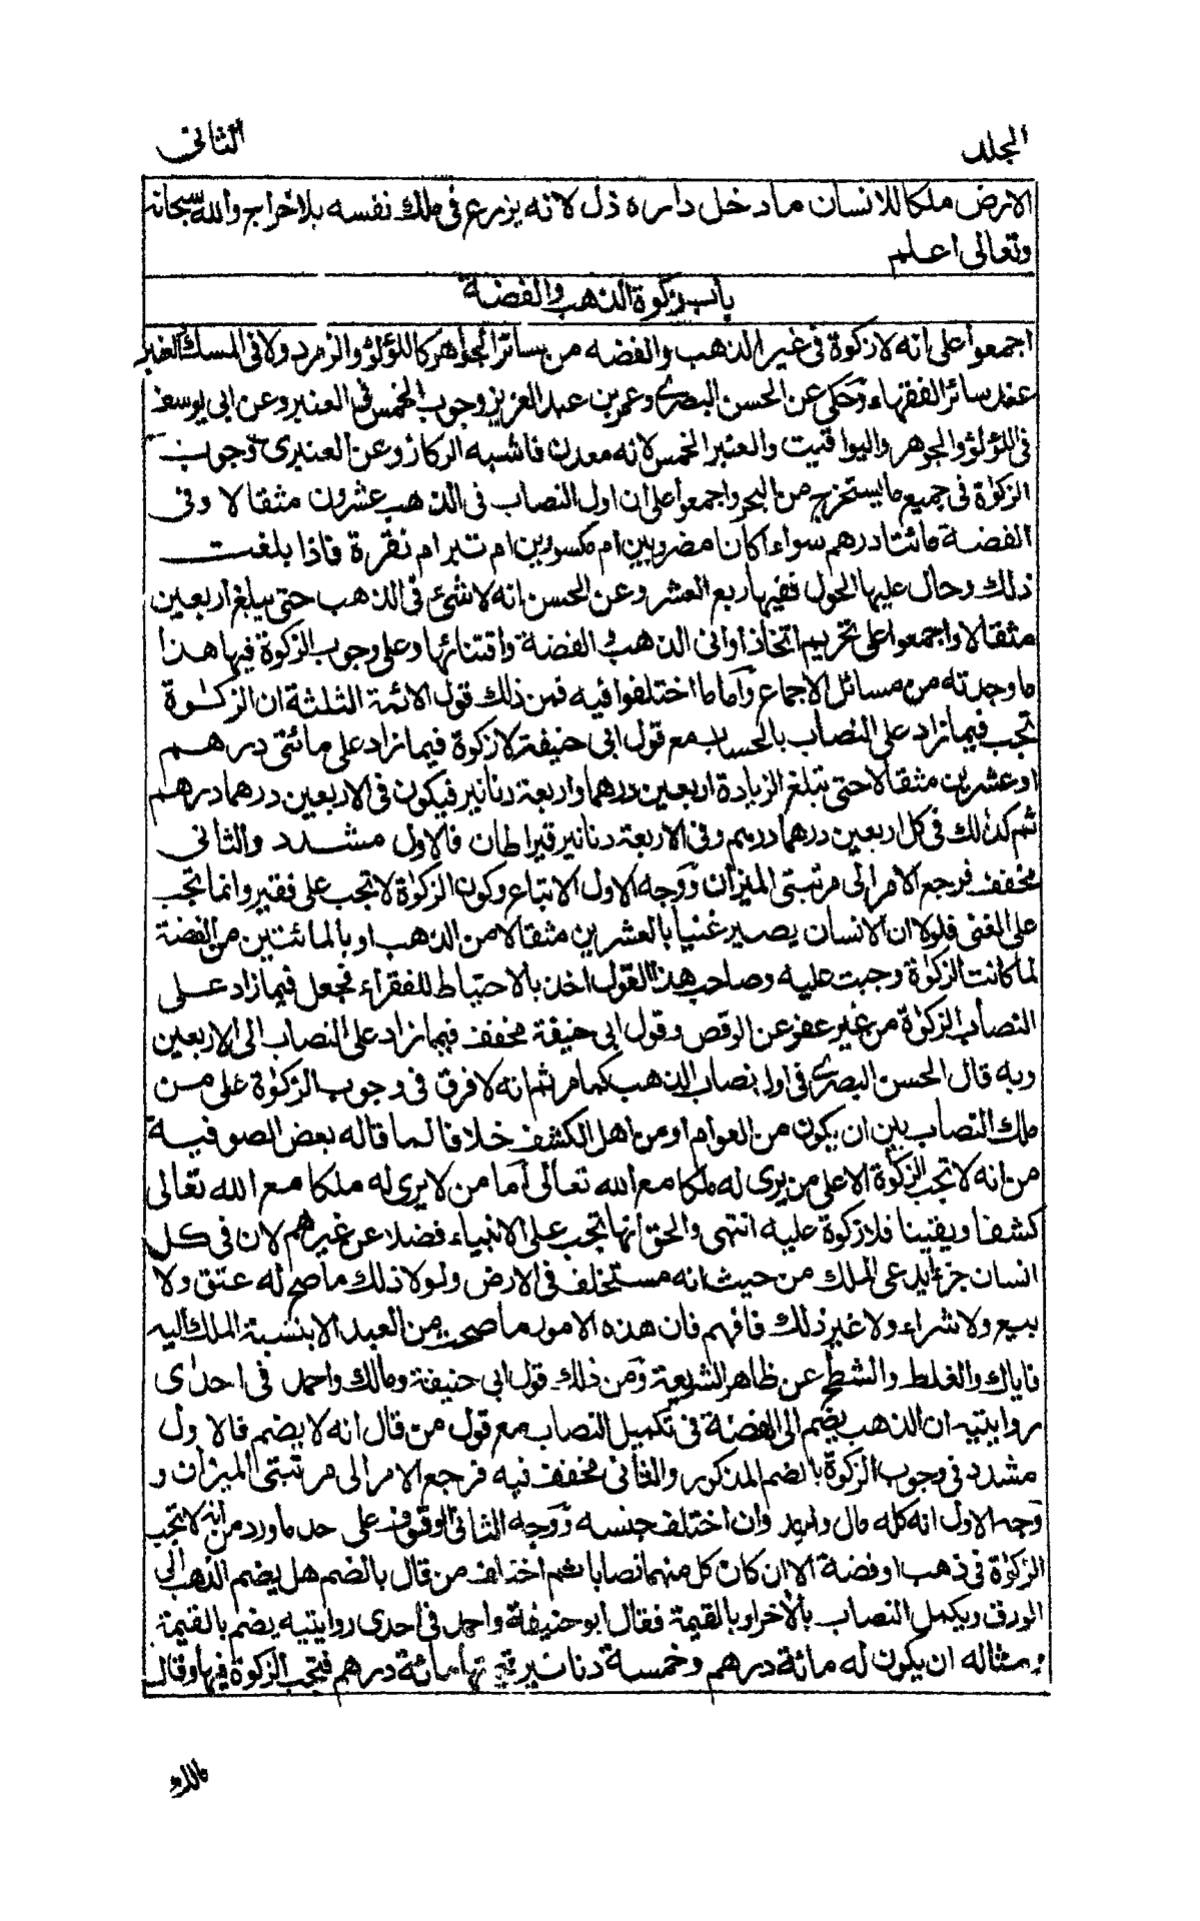 المجلد
الثانى
الارض ملكا للانسان ما دخل داره ذل لانه يزرع فى ملك نفسه بلا خراج والله سبحانه
وتعالى اعلم
باب زكوة الذهب والفضة
اجمعوا على انه لا زكوة فى غير الذهب والفضه من سائر الجواهر كاللؤلؤ والزمرد ولا فى المسك والعنبر
عند سائر الفقهاء وحكى عن الحسن البصرى وعمر بن عبد العزيز وجوب الخمس فى العنبر وعن ابى يوسف
فى اللؤلؤ والجوهر واليواقيت والعنبر الخمس لانه معدن فاشبه الركاز وعن العنبرى وجوب
الزكوة فى جميع ما يستخرج من البحر واجمعوا على ان اول النصاب فى الذهب عشرون مثقالا وفى
الفضة مائتا درهم سواء اكانا مضروبين ام مكسورين ام تبرا ام نقرة فاذا بلغت
ذلك وحال عليها الحول ففيها ربع العشر وعن الحسن انه لا شئ فى الذهب حتى يبلغ اربعين
مثقالا واجمعوا على تحريم اتخاذ اوانى الذهب والفضة واقتنائها وعلى وجوب الزكوة فيها هذا
ما وجدته من مسائل الاجماع وأما ما اختلفوا فيه فمن ذلك قول الائمة الثلثة ان الزكوة
تجب فيما زاد على النصاب بالحساب مع قول ابى حنيفة لا زكوة فيما زاد على مائتى درهم
او عشرين مثقالا حتى تبلغ الزيادة اربعين درهما واربعة دنانير فيكون فى الاربعين درهما درهم
ثم كذلك فى كل اربعين درهما درهم وفى الاربعة دنانير قيراطان فالاول مشدد والثانى
مخفف فرجع الامر الى مرتبتى الميزان ووجه الاول الاتباع وكون الزكوة لا تجب على فقير وانما تجب
على الغنى فلولا ان الانسان يصير غنيا بالعشرين مثقالا من الذهب او بالمائتين من الفضة
لما كانت الزكوة وجبت عليه وصاحب هذا القول اخذ بالاحتياط للفقراء فجعل فيما زاد على
النصاب الزكوة من غير عفو عن الوقص وقول ابى حنيفة مخفف فيما زاد على النصاب الى الاربعين
وبه قال الحسن البصرى فى اول نصاب الذهب كما مر ثم انه لا فرق فى وجوب الزكوة على من
ملك النصاب بين ان يكون من العوام او من اهل الكشف خلافا لما قاله بعض الصوفية
من انه لا تجب الزكوة الا على من يرى له ملكا مع الله تعالى أما من لا يرى له ملكا مع الله تعالى
كشفا ويقينا فلا زكوة عليه انتهى والحق انها تجب على الانبياء فضلا عن غيرهم لان فى كل
انسان جزء يدعى الملك من حيث انه مستخلف فى الارض ولولا ذلك ما صح له عتق ولا
بيع ولا شراء ولا غير ذلك فافهم فان هذه الامور ما صحت من العبد الا بنسبة الملك اليه
فاياك والغلط والشطح عن ظاهر الشريعة ومن ذلك قول ابى حنيفة ومالك واحمد فى احدى
روايتيه ان الذهب يضم الى الفضة فى تكميل النصاب مع قول من قال انه لا يضم فالاول
مشدد فى وجوب الزكوة بالضم المذكور والثانى مخفف فيه فرجع الامر الى مرتبتى الميزان و
وجه الاول انه كله مال واحد وان اختلف جنسه ووجه الثانى الوقوف على حد ما ورد من انه لا تجب
الزكوة فى ذهب او فضة الا ان كان كل منهما نصابا ثم اختلف من قال بالضم هل يضم الذهب الى
الورق ويكمل النصاب بالأخراء بالقيمة فقال ابو حنيفة واحمد فى احدى روايتيه يضم بالقيمة
ومثاله ان يكون له مائة درهم وخمسة دنانير قيمتها مائة درهم فتجب الزكوة فيها وقال